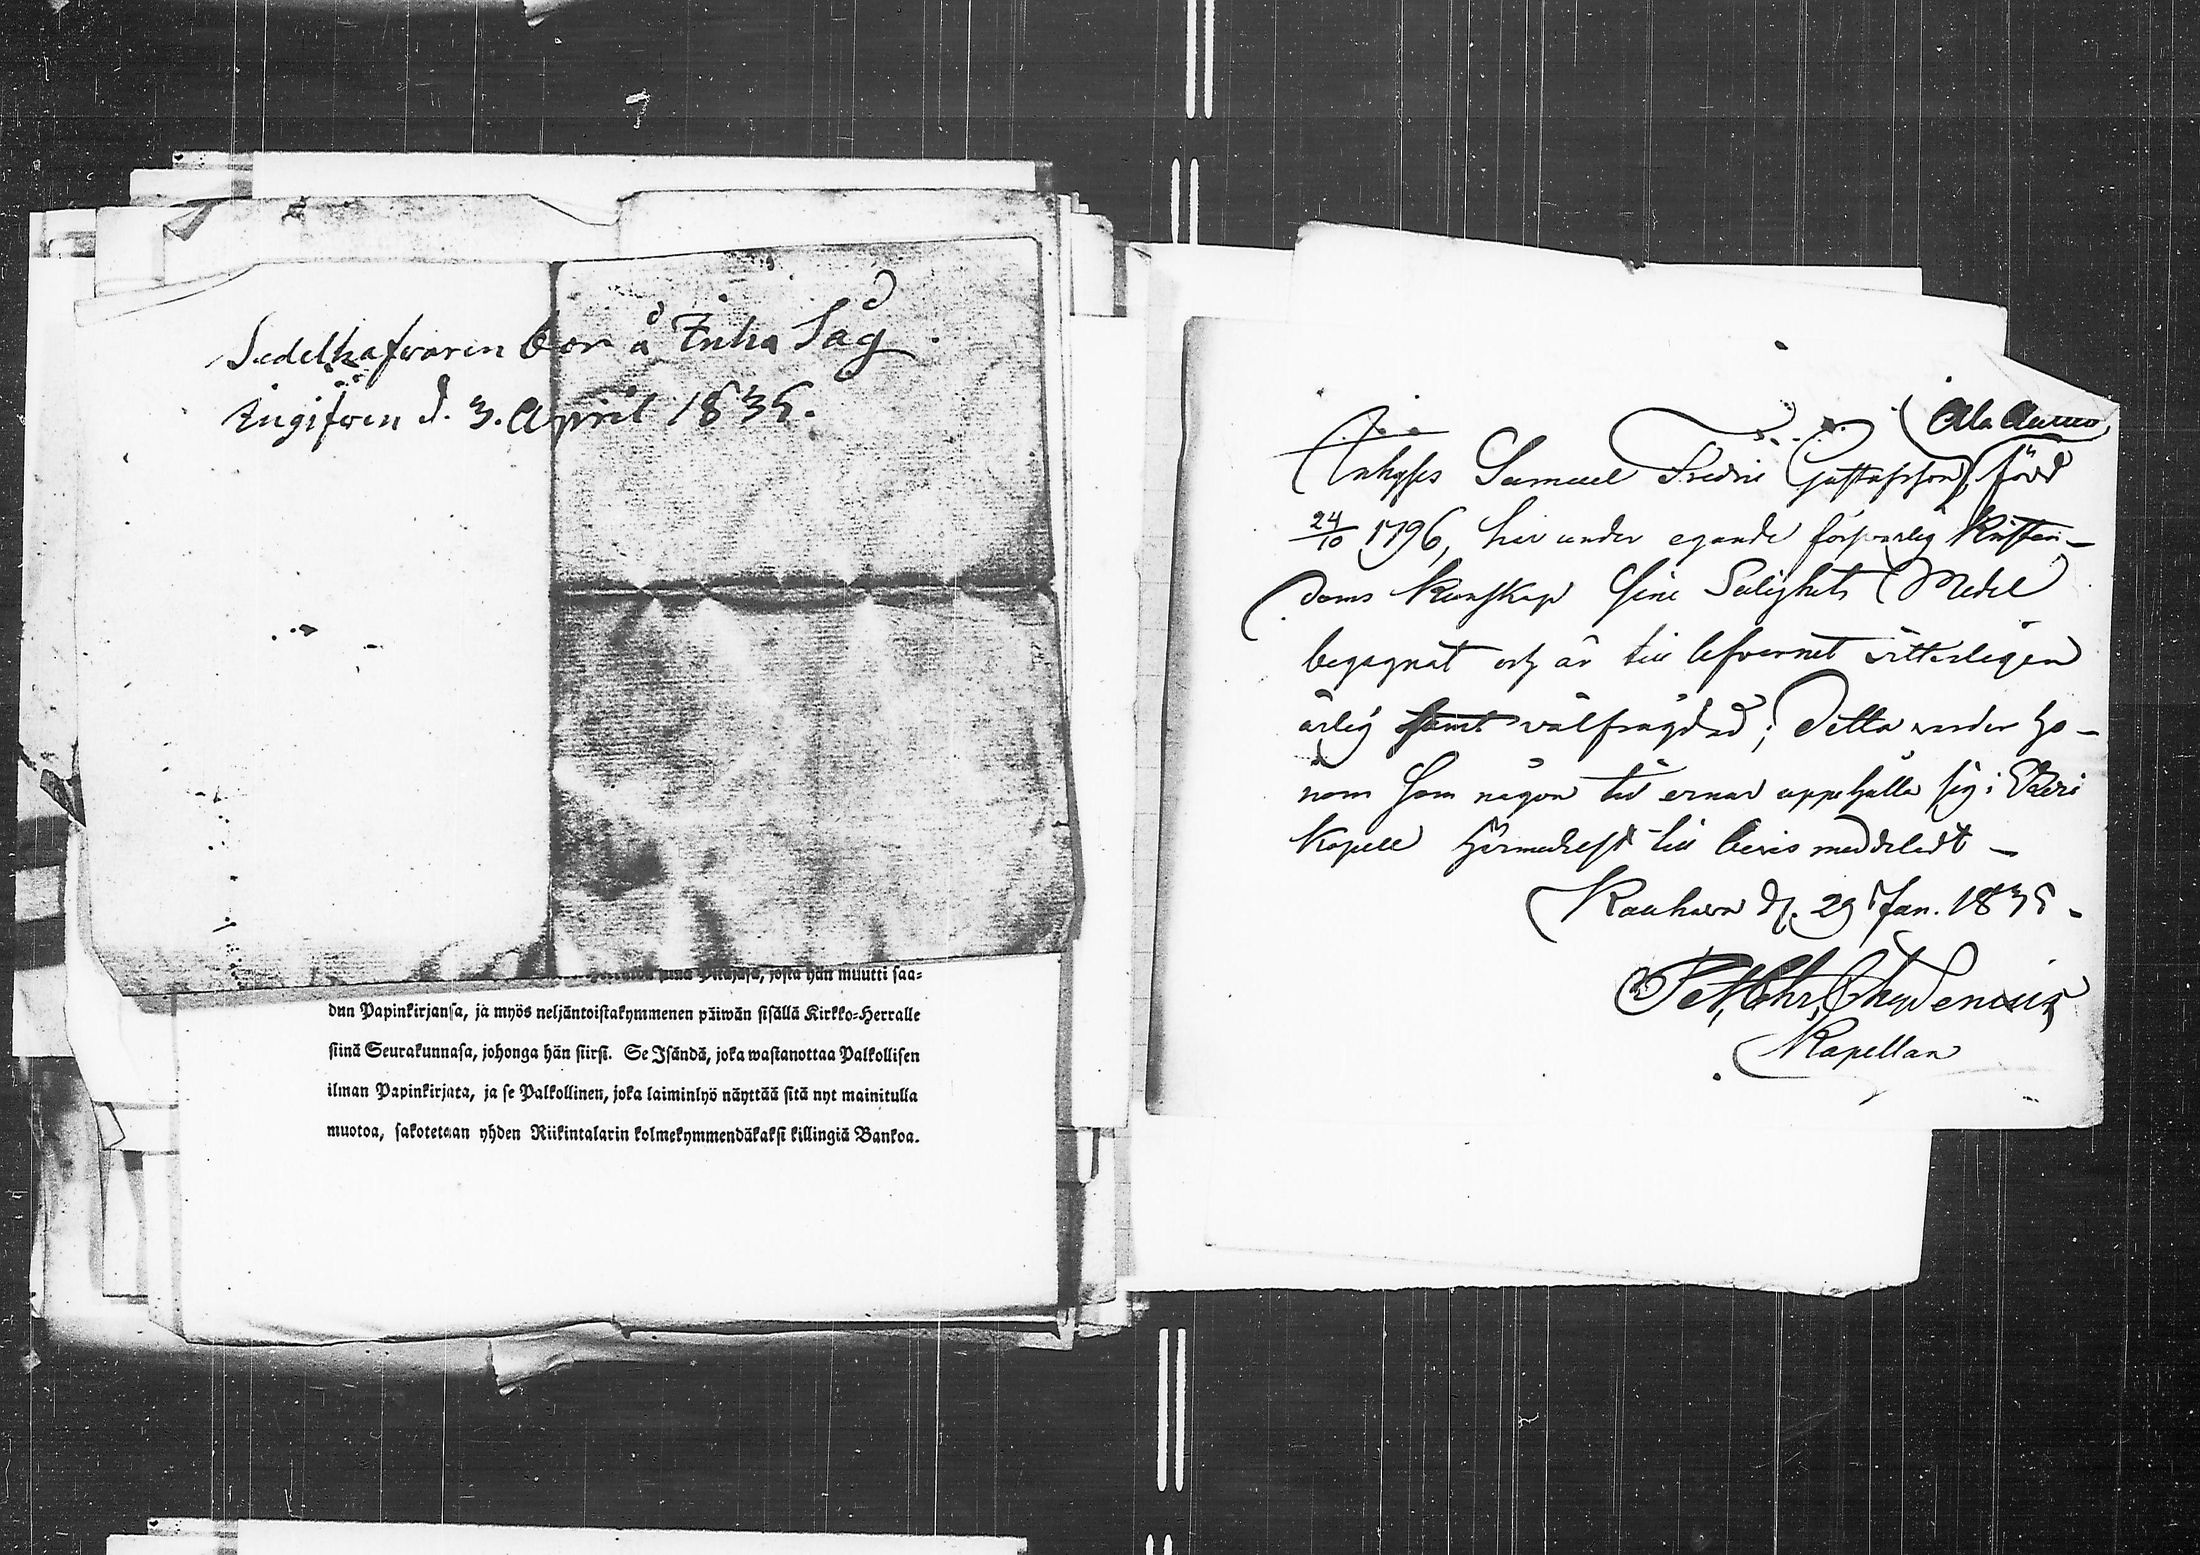 Sedelhafvaren bor å Inha Såg.
Ingifven d. 3. April 1835.
josta hän muutti saa-
dun Papinkirjansa, ja myös neljäntoistakymmenen päiwän sisällä Kirkko-Herralle
siinä Seurakunnasa, johonga hän siirsi. Se Isändä, joka wastanottaa Palkollisen
ilman Papinkirjata, ja se Palkollinen, joka laiminlyö näyttää sitä nyt mainitulla
muotoa, sakotetaan yhden Riikintalarin kolmekymmendäkaksi killingiä Bankoa.
Ala Aumo,
Inhyses Samuel Fredric Gustafsson, född
24/10 1796, här under egande försvarlig Kristen-
doms Kunskap sine Salighets Medel
begagnat och är till lefvernet vitterligen
ärlig samt välfrägdad; Detta varder ho-
nom som någon tid ernar uppehålla sig i Etseri
Kapell härmedelst till bevis meddeladt –
Kauhava d. 29 Jan. 1835.
Pet. Chr. Chydenius
Kapellan